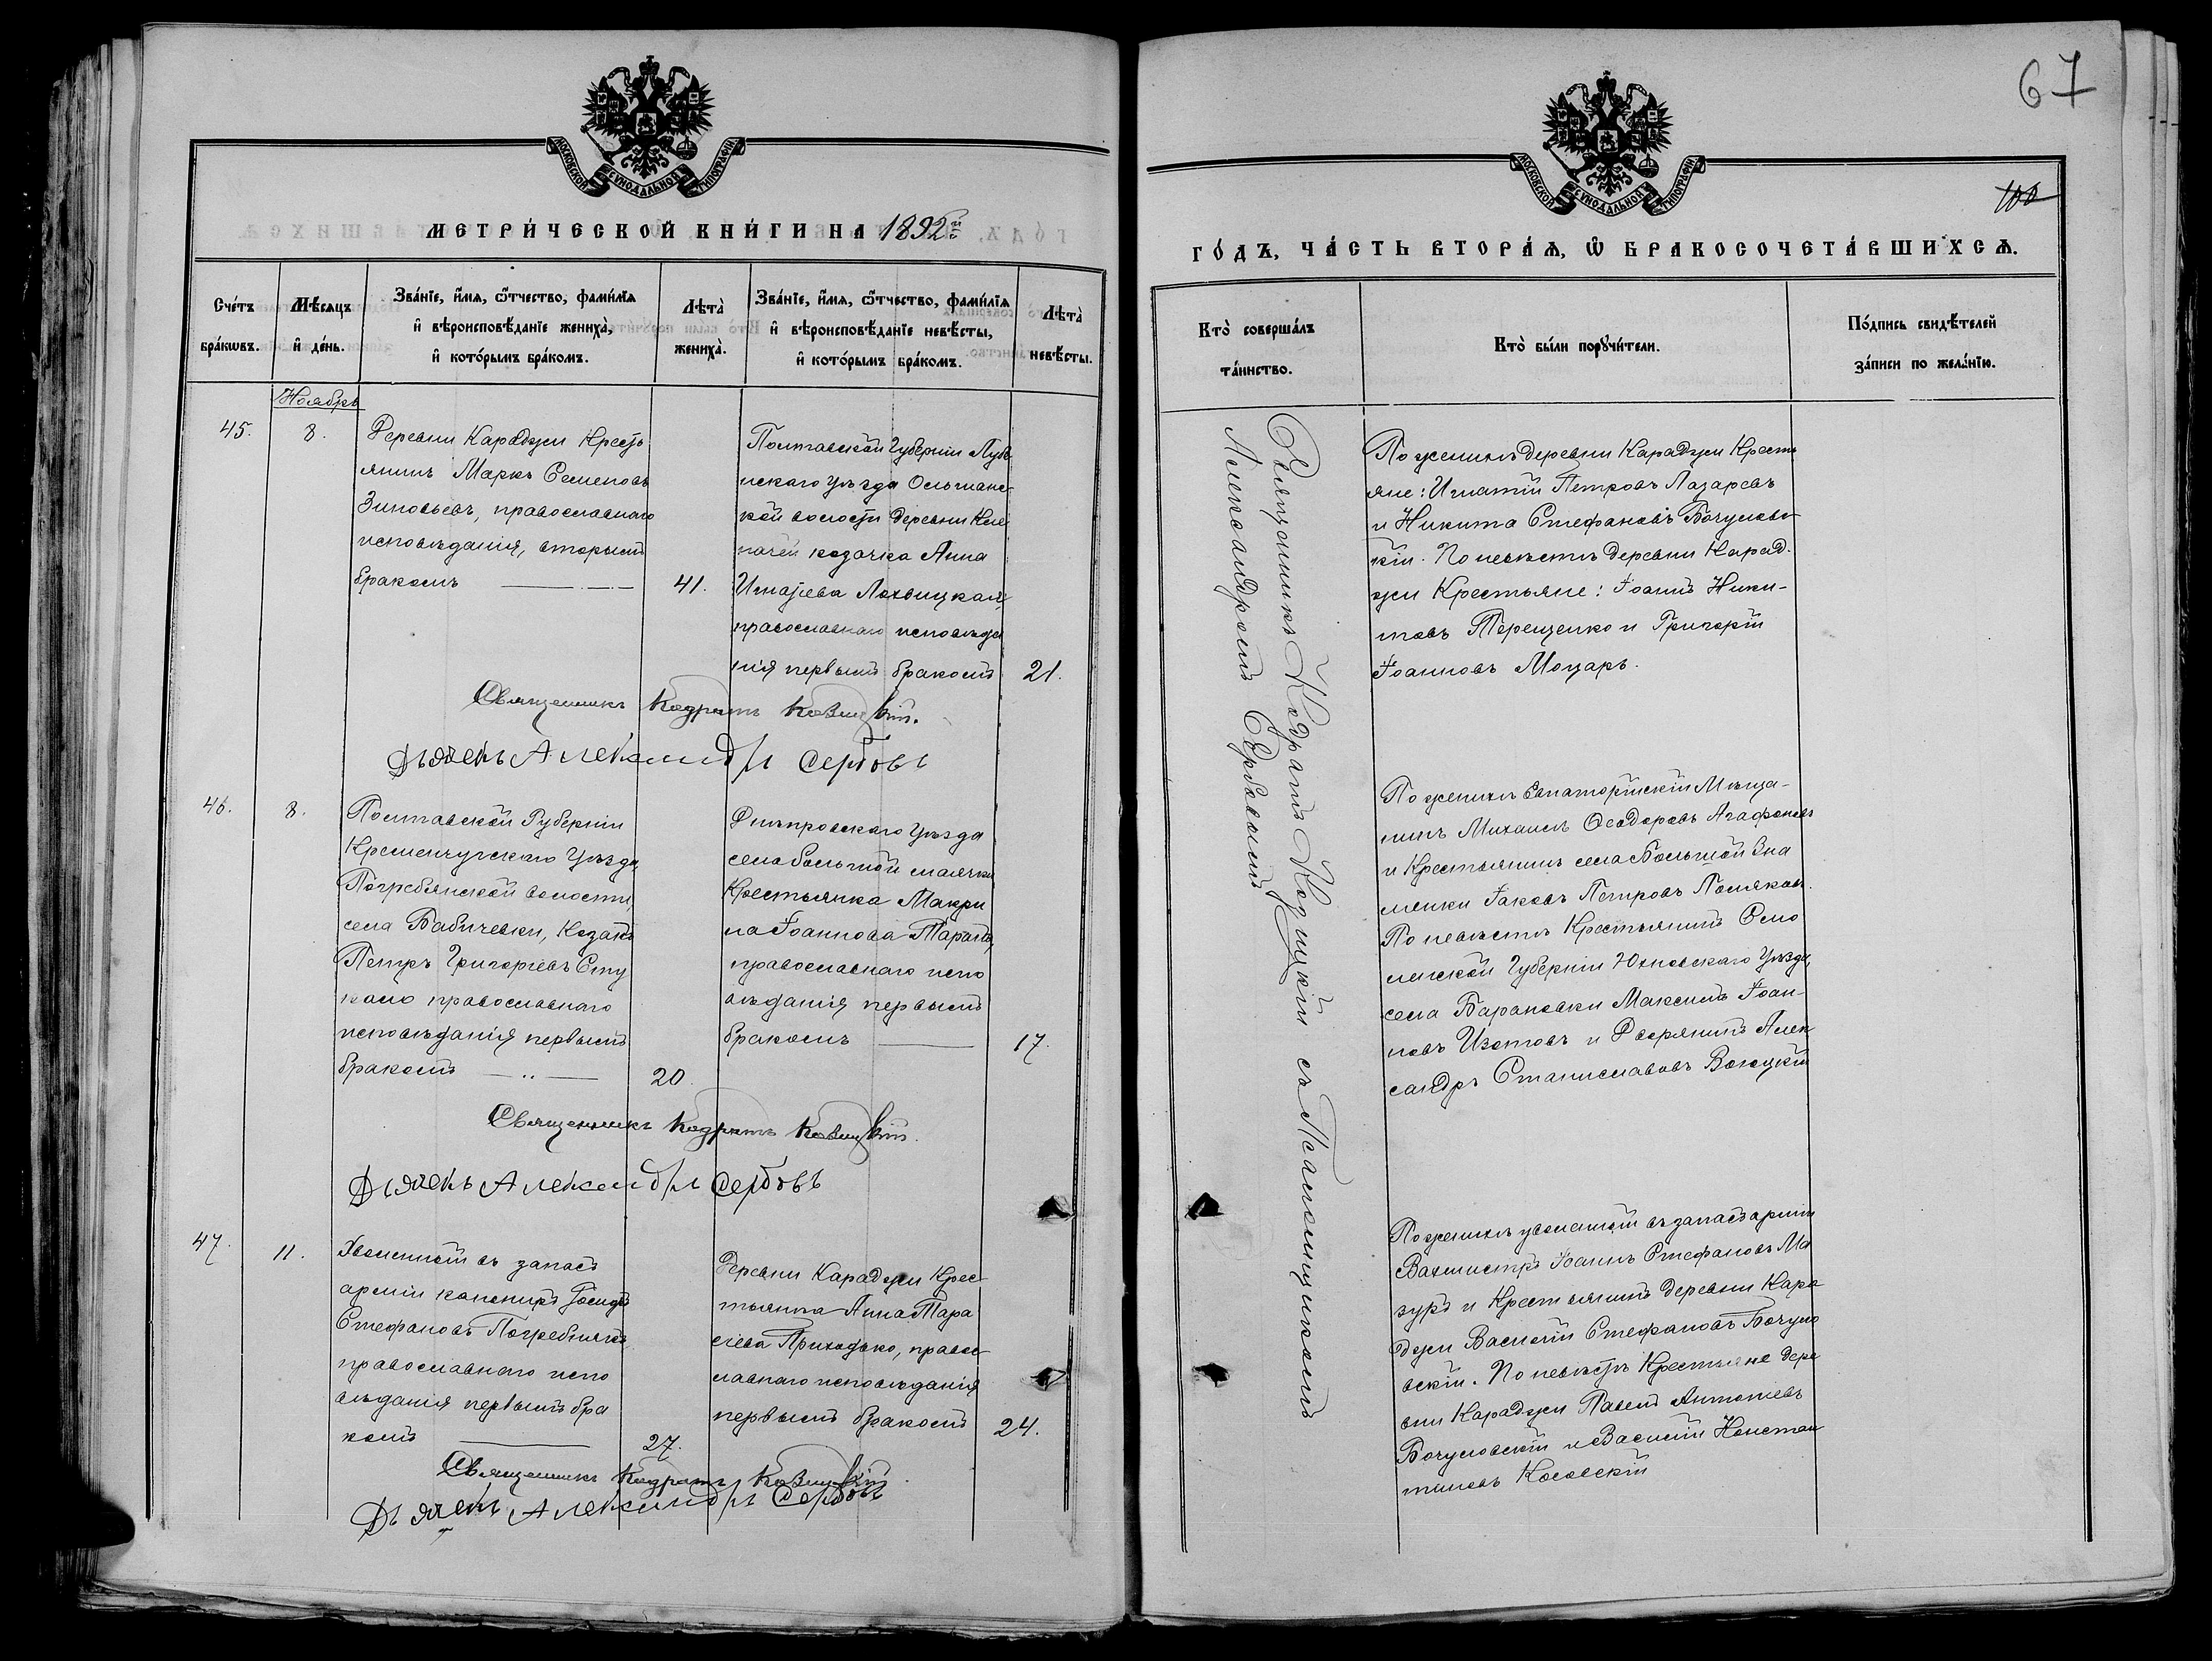 67
100
МОСКОВСКОЙ СУНОДАЛЬНОЙ ТИПОГРАФІИ
МЕТРИ́ЧЕСКОЙ КНИ́ГИ НА 1892й
Сче́тъ бра́кωвъ.
Мѣ́сяцъ и҆ де́нь.
Зва́нїе, и҆́мя, ѻ҆́тчество, фами́лїя
и҆ вѣроисповѣ́данїе жениха̀,
и҆ кото́рымъ бра́комъ.
Лѣта̀ жениха̀.
Зва́нїе, и҆́мя, ѻ҆́тчество, фами́лїя
и҆ вѣроисповѣ́данїе невѣ́сты,
и҆ кото́рымъ бра́комъ.
Лѣта̀ невѣ́сты.
Ноябрь
45.
8.
Деревни Караджи Кресть
янинъ Маркъ Семеновъ
Зиновьевъ, православнаго
исповѣданія, вторымъ
бракомъ
41.
Полтавской Губерніи Лубе
нскаго уѣзда Ольшанс-
кой волости деревни Кле
пачей козачка Анна
Игнатіева Лохвицкая,
православнаго исповѣда
нія первымъ бракомъ
21.
Священникъ Кодратъ Козицкій.
Дьячекъ Александръ Сербовъ
46.
8.
Полтавской Губерніи
Кременчугскаго Уѣзда,
Погребянской волости,
села Бабичевки, Козакъ
Петръ Григоріевъ Сту
кало православнаго
исповѣданія первымъ
бракомъ
20
Днѣпровскаго Уѣзда
села большой маячки
Крестьянка Макри
на Іоаннова Таранъ,
православнаго испо
вѣданія первымъ
бракомъ
17.
Священникъ Кодратъ Козицкій.
Дьячекъ Александръ Сербовъ
47.
11.
Уволенный въ запасъ
арміи канониръ Іосифъ
Стефановъ Погребнякъ
православнаго испо
вѣданія первымъ бра
комъ
27.
Деревни Караджи Крес-
тьянка Анна Тара
сіева Приходько, правос-
лавнаго исповѣданія
первымъ бракомъ
24.
Священникъ Кодратъ Козицкій.
Дьячекъ Александръ Сербовъ
МОСКОВСКОЙ СУНОДАЛЬНОЙ ТИПОГРАФІИ
ГО́ДЪ, ЧА́СТЬ ВТОРА́Я, Ѡ҆ БРАКОСОЧЕТА́ВШИХСЯ.
Кто̀ соверша́лъ
та́инство.
Кто̀ бы́ли порꙋчи́тели.
По́дпись свидѣ́телей
за́писи по жела́нїю.
Священникъ Кодратъ Козицкій съ Псаломщикомъ
Александромъ Сербовымъ
По женихѣ деревни Караджи Кресть
яне: Игнатій Петровъ Лазаревъ
и Никита Стефановъ Бочуловс-
кій. По невѣстѣ деревни Карад-
жи Крестьяне: Іоаннъ Ники-
товъ Терещенко и Григорій
Іоанновъ Моцарь.
По женихѣ Евпаторійскій Мѣща-
нинъ Михаилъ Ѳеодоровъ Агафоновъ
и Крестьянинъ села Большой Зна
менки Іаковъ Петровъ Поляковъ.
По невѣстѣ Крестьянинъ Смо
ленской Губерніи Юхновскаго Уѣзда,
села Барановки Максимъ Іоан-
новъ Изотовъ и Дворянинъ Алек
сандръ Станиславовъ
По женихѣ уволенный въ запасъ арміи
Вахмистръ Іоаннъ Стефановъ Ма
зуръ и Крестьянинъ деревни Кара
джи Василій Стефановъ Бочуло
вскій. По невѣстѣ Крестьяне дере
вни Караджи Павелъ Антоніевъ
Бочуловскій и Василій Констан
тиновъ Косовскій